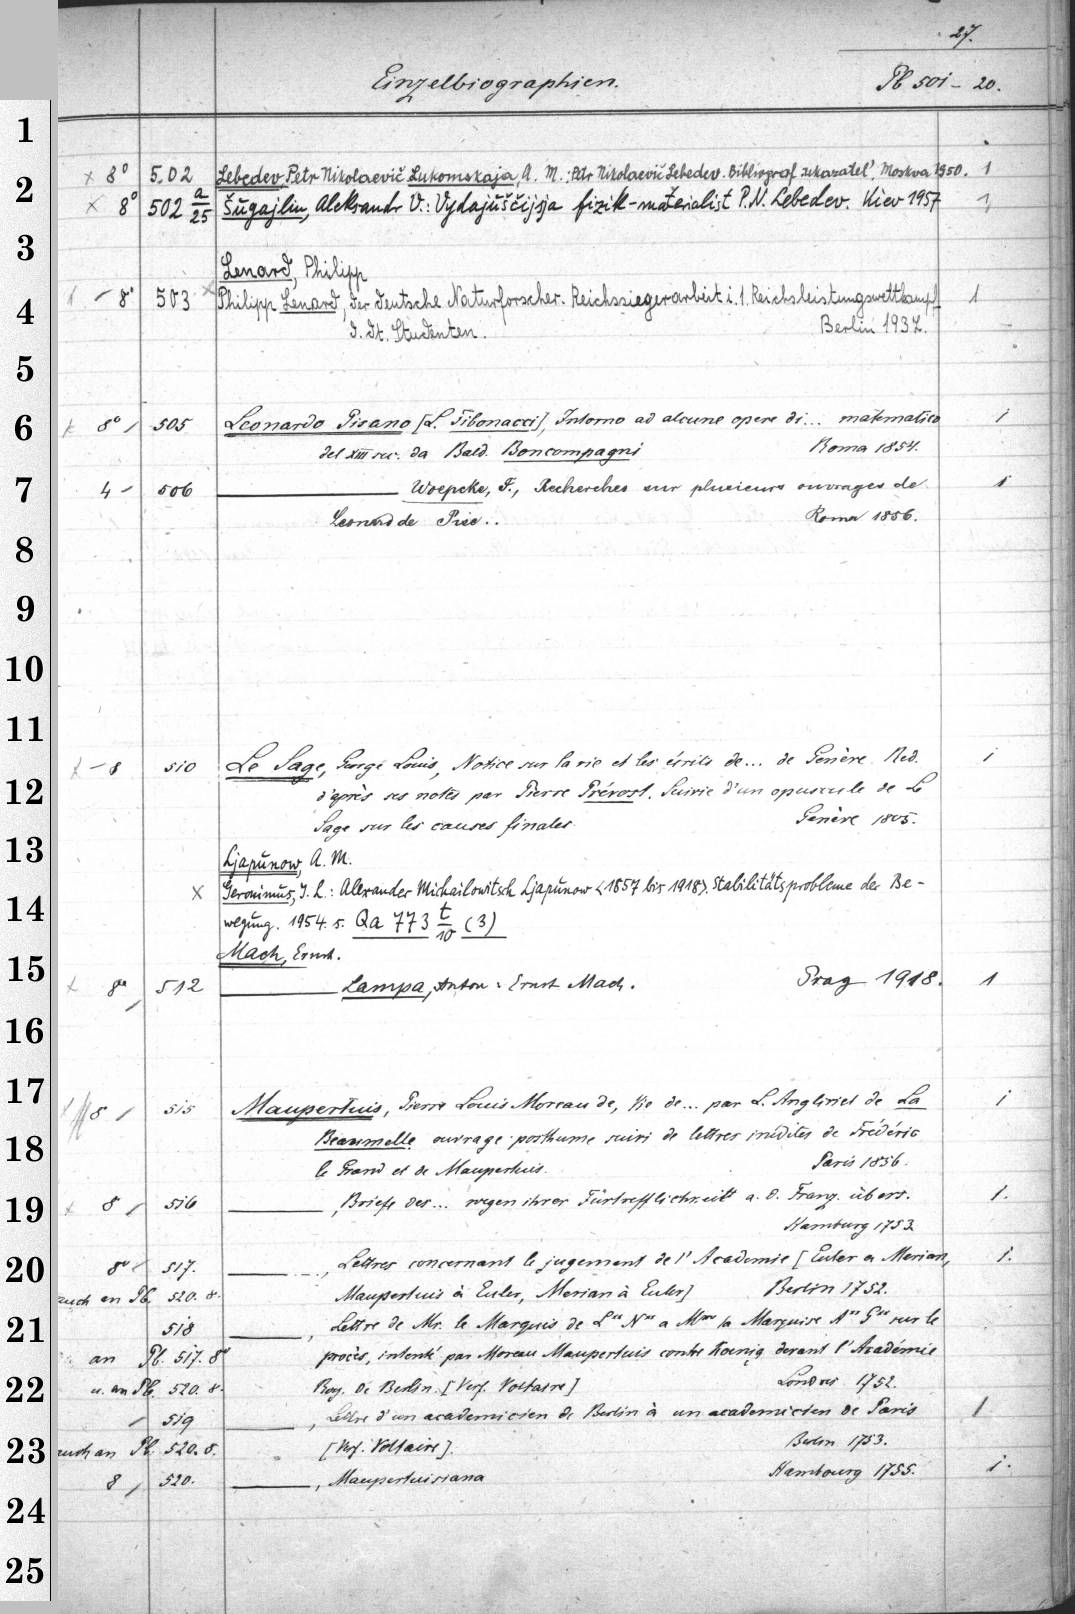 27.
Einzelbiographien. Pb 501 - 20.
1
2
3
4
5
6
7
8
9
10
11
12
13
14
15
16
17
18
19
20
21
22
23
24
25
x 8° 502 Lebedev, Petr Nikolaevič Lukomskaja, A. M.: Petr Nikolaevič Lebedev. Bibliograf. ukazatel', Moskva 1950. 1
x 8° 502 a/25 Šugajlin, Aleksandr V.: Vydajuščijsja fizik-materialist P. N. Lebedev. Kiev 1957 1
Lenard, Philipp
- 8° 503 x Philipp Lenard, der deutsche Naturforscher. Reichssiegerarbeit i. 1. Reichsleistungswettkampf 1
d. dt. Studenten. Berlin 1937.
8° / 505 Leonardo Pisano [L. Fibonacci], Intorno ad alcune opere di... matematico 1
del XIII sec. da Bald. Boncompagni Roma 1854.
4 - 506 Woepcke, F., Recherches sur plusieurs ouvrages de 1
Leonard de Pise.. Roma 1856.
- 8 510 Le Sage, George Louis, Notice sur la vie et les écrits de... de Genève Red. 1
d'après ses notes par Pierre Prévost. Suivie d'un opuscule de Le
Sage sur les causes finales Genève 1805.
Ljapunow, A. M.
x Geronimus, J. L.: Alexander Michailowitsch Ljapunow <1857 bis 1918>. Stabilitätsprobleme der Be-
wegung. 1954. s. Qa 773 t/10 (3)
Mach, Ernst.
x 8° / 512 Lampa, Anton: Ernst Mach. Prag 1918. 1
8 / 515 Maupertuis, Pierre Louis Moreau de, Vie de... par L. Angliviel de La 1
Beaumelle ouvrage posthume suivi de lettres inédites de Frédéric
le Grand et de Maupertuis. Paris 1856.
x 8 / 516 , Briefe des... wegen ihrer Fürtrefflichkeit a. d. Franz. übers. 1.
Hamburg 1753
8° 517. , Lettres concernant le jugement de l'Academie [Euler a Merian, 1.
auch an Pb. 520. 8. Maupertuis à Euler, Merian à Euler] Berlin 1752.
518 , Lettre de Mr. le Marquis de L** N** a Mme la Marquise A** G** sur le
an Pb. 517. 8° procès, intenté par Moreau Maupertuis contre Koenig devant l'Académie
u. an Pb. 520. 8. Roy. de Berlin. [Verf. Voltaire] Londres 1752.
/ 519 , Lettre d'un academicien de Berlin à un academicien de Paris 1
auch an Pb. 520. 8. [Verf. Voltaire]. Berlin 1753.
8 / 520. , Maupertuisiana Hambourg 1755. 1.